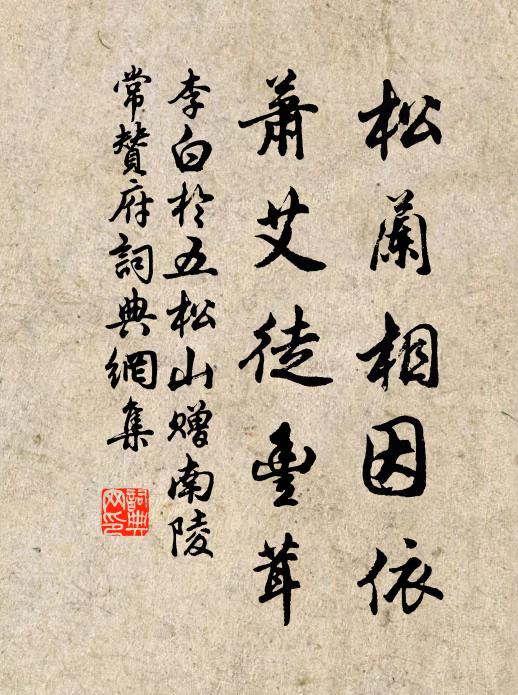 松蘭相因依
蕭艾徒豐茸
李白於五松山贈南陵
常贊府詞典網集
詞典網印